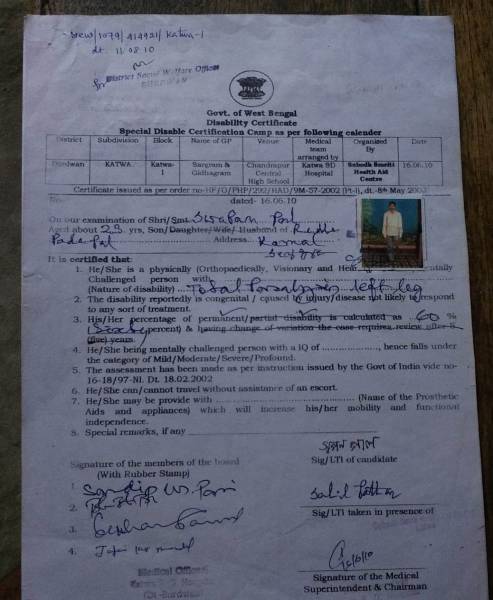 New/1079/414921/Katwa-I
dt. 11.08.10
for District Social Welfare Officer
Govt. of West Bengal
Disability Certificate
Special Disable Certification Camp as per following calender
District Subdivision Block Name of GP Venue Medical team arranged by Organized By Date
Burdwan KATWA Katwa-I Sargram & Gidhagram Chandrapur Central High School Katwa SD Hospital Subodh Smriti Health Aid Centre 16.06.10
Certificate issued as per order no-HF/O/PHP/292/HAD/9M-57-2002 (Pt-I), dt.-8th May 2003
No- dated- 16.06.10
On our examination of Shri/Smt Swapan Pal
Aged about 23 yrs, Son/Daughter/Wife/ Husband of
Pada Pal Address
It is certified that:
1. He/She is a physically (Orthopaedically, Visionary and
Challenged person with
(Nature of disability) Total Paralysis left leg
2. The disability reportedly is congenital / caused by injury/disease not likely to respond
to any sort of treatment.
3. His/Her percentage of permanent/partial disability is calculated as 60 %
(Sixty percent) & having change of variation the case requires review after 5
(five) years.
4. He/She being mentally challenged person with a IQ of ................, hence falls under
the category of Mild/Moderate/Severe/Profound.
5. The assessment has been made as per instruction issued by the Govt of India vide no-
16-18/97-NI. Dt. 18.02.2002
6. He/She can/cannot travel without assistance of an escort.
7. He/She may be provide with ........................ (Name of the Prosthetic
Aids and appliances) which will increase his/her mobility and functional
independence.
8. Special remarks, if any
স্বপন পাল
Signature of the members of the board
(With Rubber Stamp)
Sig/LTI of candidate
1.
2.
3.
4.
Sig/LTI taken in presence of
Medical Officer
Katwa S.D. Hospital
16/6/10
Signature of the Medical
Superintendent & Chairman